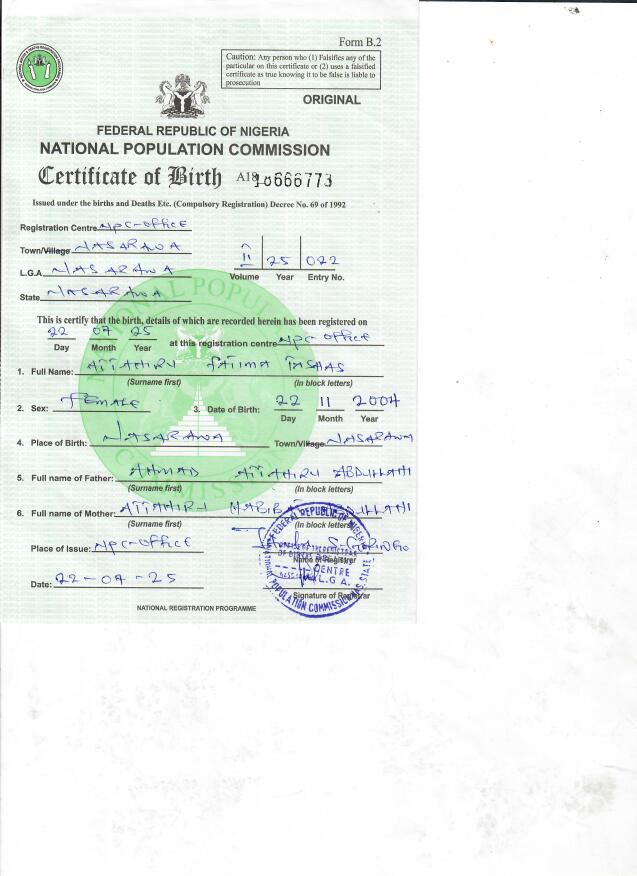 Form B.2
Caution: Any person who (1) Falsifies any of the
particular on this certificate or (2) uses a falsified
certificate as true knowing it to be false is liable to
prosecution
ORIGINAL
FEDERAL REPUBLIC OF NIGERIA
NATIONAL POPULATION COMMISSION
Certificate of Birth A18 10666773
Issued under the births and Deaths Etc. (Compulsory Registration) Decree No. 69 of 1992
Registration Centre NPC-OFFICE
Town/Village NASARAWA
II 25 022
Volume Year Entry No.
L.G.A. NASARAWA
State NASARAWA
This is certify that the birth, details of which are recorded herein has been registered on
22 07 25 at this registration centre NPC OFFICE
Day Month Year
1. Full Name: ATTAHIRU FATIMA
(Surname first) (In block letters)
2. Sex: FEMALE 3. Date of Birth: 22 11 2004
Day Month Year
4. Place of Birth: NASARAWA Town/Village NASARAWA
5. Full name of Father: AHMAD ATTAHIRU ABDULLAHI
(Surname first) (In block letters)
6. Full name of Mother: ATTAHIRU HABIBA ABDULLAHI
(Surname first) (In block letters)
Place of Issue: NPC-OFFICE
Name of Registrar
Date: 22-07-25
Signature of Registrar
NATIONAL REGISTRATION PROGRAMME